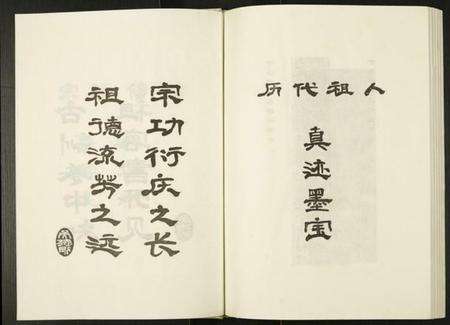 历代祖人
真迹墨宝
宗功衍庆之长
祖德流芳之远